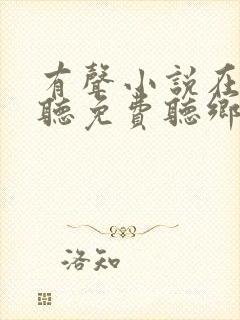 有聲小說在
聽免費聽鄉
洛知